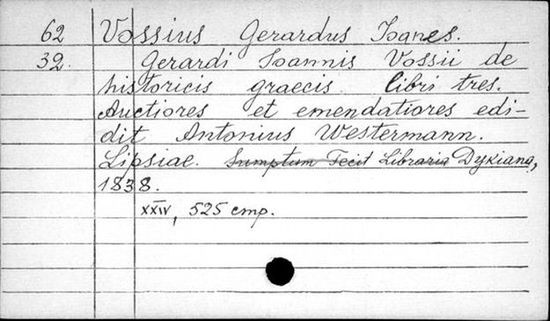 62 Vossius Gerardus Ioanes.
32. Gerardi Ioannis Vossii de
historicis graecis libri tres.
Auctiores et emendatiores edi-
dit Antonius Westermann.
Lipsiae. Sumptum Fecit Libraria Dykiana,
1838.
XXIV, 525 cmp.